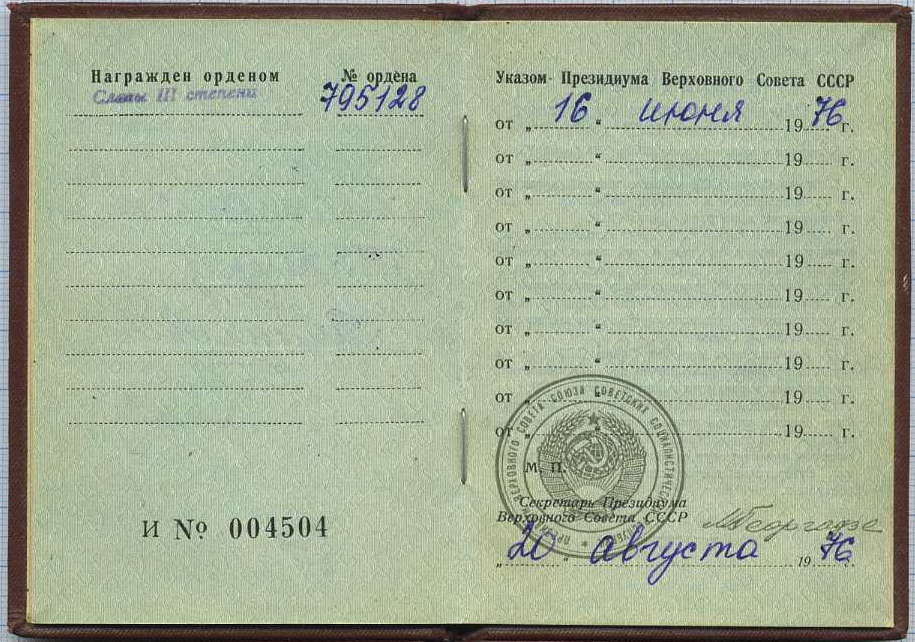 Награжден орденом № ордена
Славы III степени 795128
Указом Президиума Верховного Совета СССР
от „ 16 “ июня 1976 г.
от „ “ 19 г.
от „ “ 19 г.
от „ “ 19 г.
от „ “ 19 г.
от „ “ 19 г.
от „ “ 19 г.
от „ “ 19 г.
от „ “ 19 г.
от „ “ 19 г.
М. П.
ВЕРХОВНОГО СОВЕТА СОЮЗА СОВЕТСКИХ СОЦИАЛИСТИЧЕСКИХ
Секретарь Президиума
Верховного Совета СССР МГеоргадзе
„ 20 “ августа 1976 г.
И № 004504